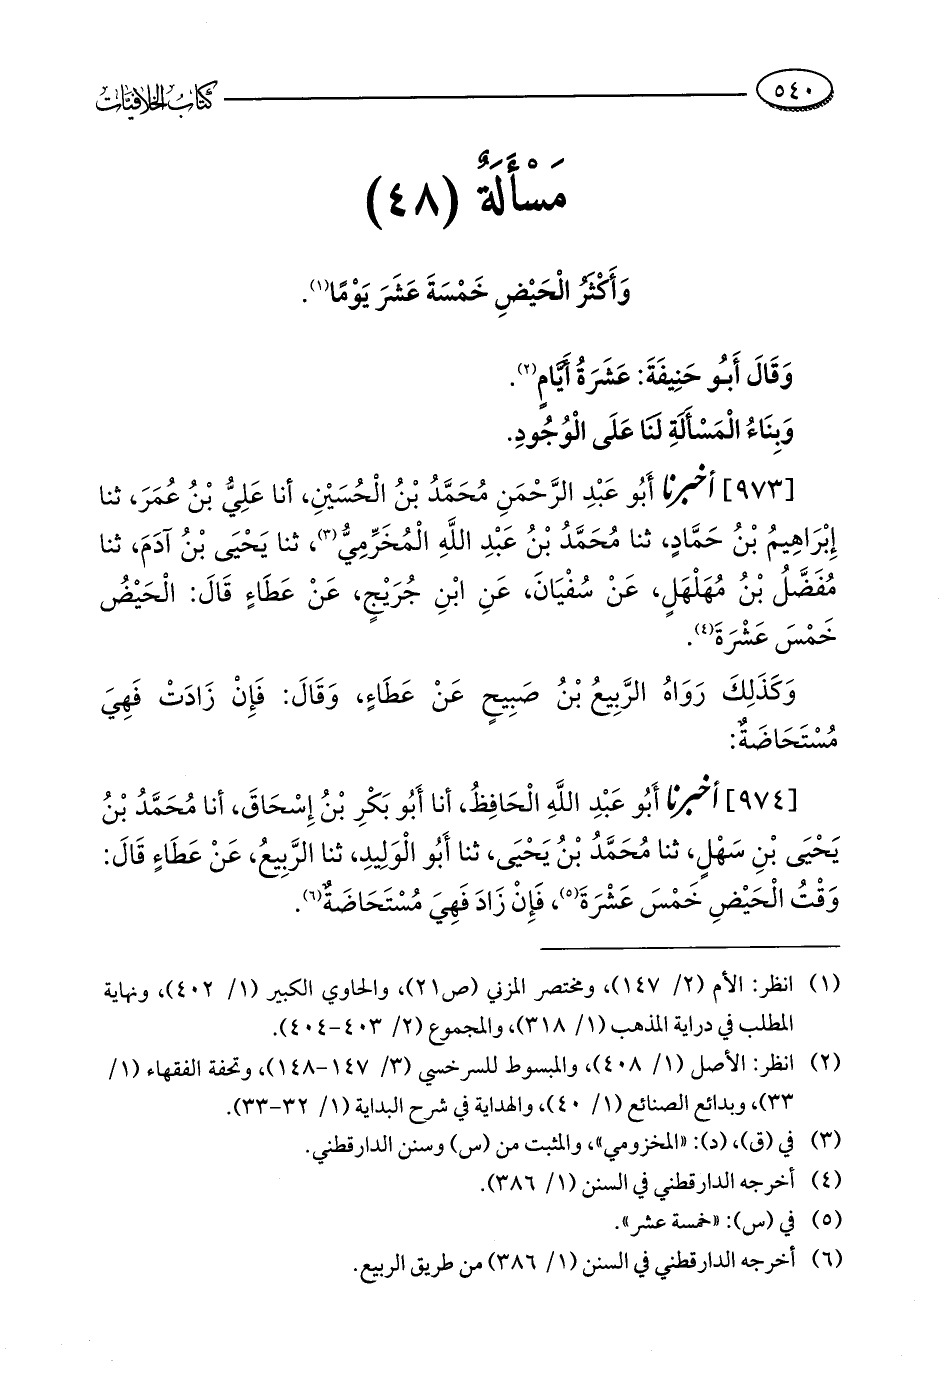 ٥٤٠
كتاب الخلافيات
مَسْأَلَةٌ (٤٨)
وَأَكْثَرُ الْحَيْضِ خَمْسَةَ عَشَرَ يَوْمًا(١).
وَقَالَ أَبُو حَنِيفَةَ: عَشَرَةُ أَيَّامٍ(٢).
وَبِنَاءُ الْمَسْأَلَةِ لَنَا عَلَى الْوُجُودِ.
[٩٧٣] أخبرنا أَبُو عَبْدِ الرَّحْمَنِ مُحَمَّدُ بْنُ الْحُسَيْنِ، أنا عَلِيُّ بْنُ عُمَرَ، ثنا
إِبْرَاهِيمُ بْنُ حَمَّادٍ، ثنا مُحَمَّدُ بْنُ عَبْدِ اللَّهِ الْمُخَرِّمِيُّ(٣)، ثنا يَحْيَى بْنُ آدَمَ، ثنا
مُفَضَّلُ بْنُ مُهَلْهَلٍ، عَنْ سُفْيَانَ، عَنِ ابْنِ جُرَيْجٍ، عَنْ عَطَاءٍ قَالَ: الْحَيْضُ
خَمْسَ عَشْرَةَ(٤).
وَكَذَلِكَ رَوَاهُ الرَّبِيعُ بْنُ صَبِيحٍ عَنْ عَطَاءٍ، وَقَالَ: فَإِنْ زَادَتْ فَهِيَ
مُسْتَحَاضَةٌ:
[٩٧٤] أخبرنا أَبُو عَبْدِ اللَّهِ الْحَافِظُ، أنا أَبُو بَكْرِ بْنُ إِسْحَاقَ، أنا مُحَمَّدُ بْنُ
يَحْيَى بْنِ سَهْلٍ، ثنا مُحَمَّدُ بْنُ يَحْيَى، ثنا أَبُو الْوَلِيدِ، ثنا الرَّبِيعُ، عَنْ عَطَاءٍ قَالَ:
وَقْتُ الْحَيْضِ خَمْسَ عَشْرَةَ(٥)، فَإِنْ زَادَ فَهِيَ مُسْتَحَاضَةٌ(٦).
(١) انظر: الأم (٢/ ١٤٧)، ومختصر المزني (ص٢١)، والحاوي الكبير (١/ ٤٠٢)، ونهاية
المطلب في دراية المذهب (١/ ٣١٨)، والمجموع (٢/ ٤٠٣-٤٠٤).
(٢) انظر: الأصل (١/ ٤٠٨)، والمبسوط للسرخسي (٣/ ١٤٧-١٤٨)، وتحفة الفقهاء (١/
٣٣)، وبدائع الصنائع (١/ ٤٠)، والهداية في شرح البداية (١/ ٣٢-٣٣).
(٣) في (ق)، (د): «المخزومي»، والمثبت من (س) وسنن الدارقطني.
(٤) أخرجه الدارقطني في السنن (١/ ٣٨٦).
(٥) في (س): «خمسة عشر».
(٦) أخرجه الدارقطني في السنن (١/ ٣٨٦) من طريق الربيع.